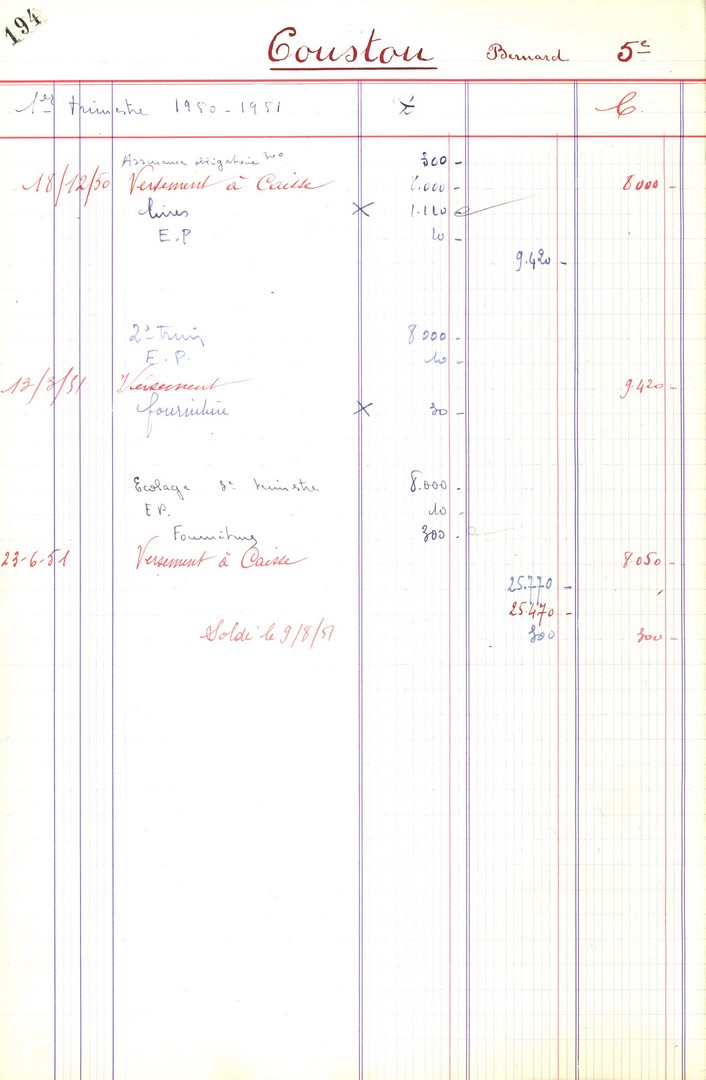 194
Couston Bernard 5e
1er trimestre 1950-1951 C.
Assurance obligatoire 300 300 -
18/12/50 Versement à Caisse 8.000 - 8000 -
livres X 1.110
E.P 10 -
9.420 -
2e trim 8000 -
E.P. 10 -
13/3/51 Versement 9.420 -
fourniture X 30 -
Ecolage 3e trimestre 8.000 -
E.P. 10 -
Fournitures 300 -
23-6-51 Versement à Caisse 8.050 -
25.770 -
25.470 -
Soldé le 9/8/51 300 300 -